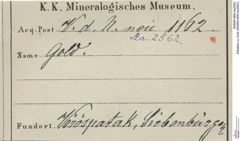 K. K. Mineralogisches Museum.
Acq. Post V. d. N. noii 1162.
An. 2562
Name Gold.
Fundort. Vöröspatak, Siebenbürgen